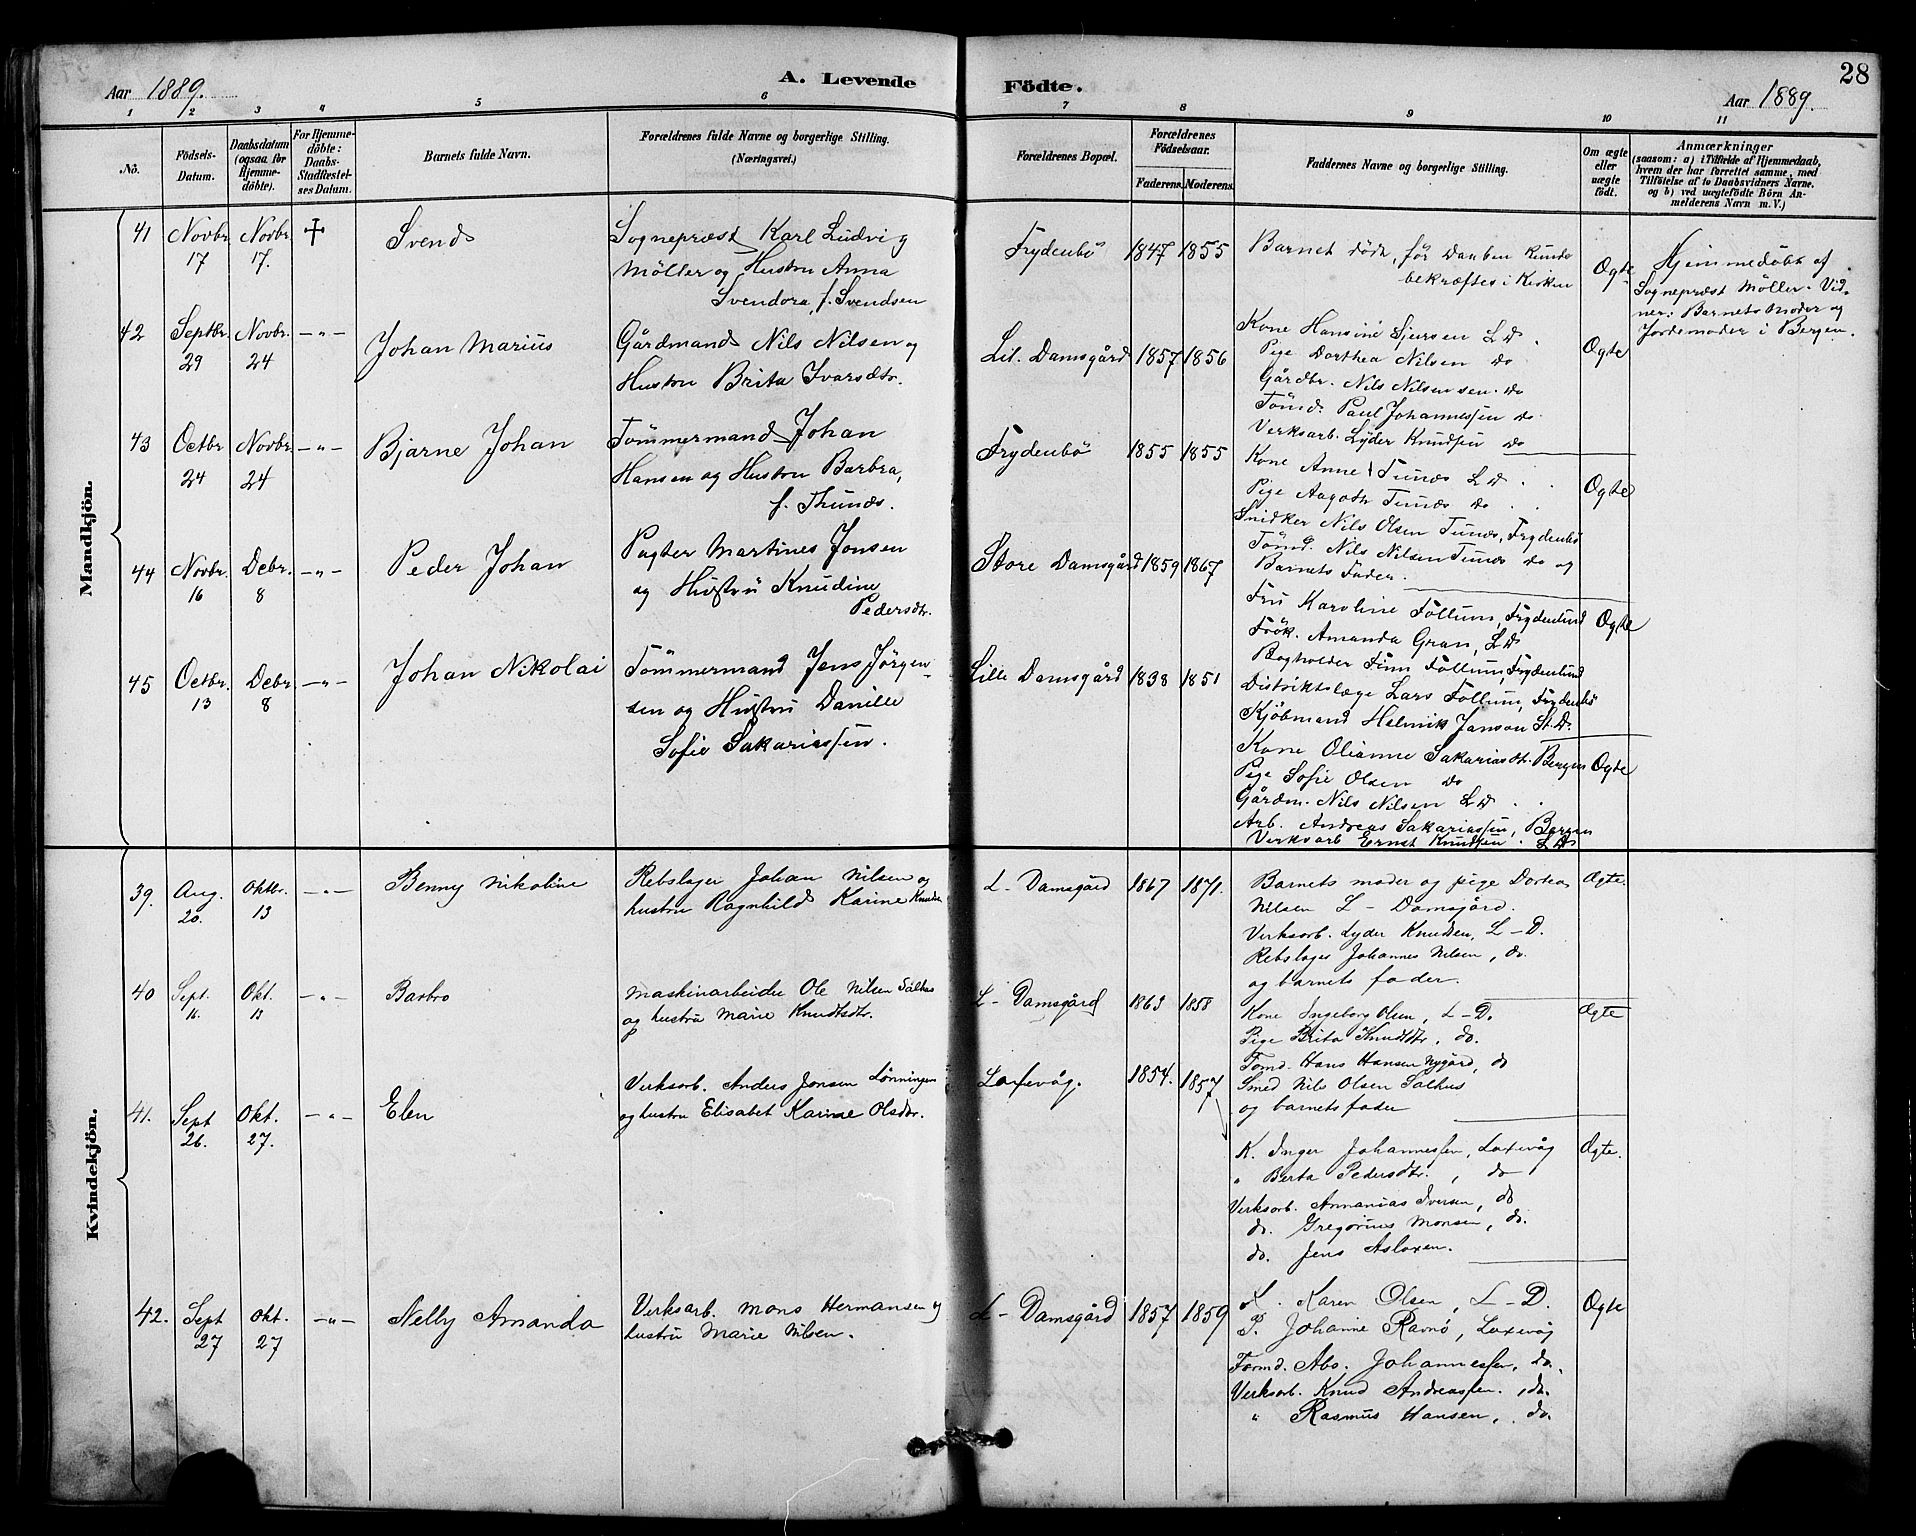 28
Aar 1889.
A. Levende Födte.
Aar 1889.
1 2 3 4 5 6 7 8 9 10 11
No.
Födsels-Datum.
Daabsdatum (ogsaa for Hjemmedöbte).
For Hjemmedöbte: Daabs-Stadfæstelses Datum.
Barnets fulde Navn.
Forældrenes fulde Navne og borgerlige Stilling.
(Næringsvei.)
Forældrenes Bopæl.
Forældrenes Födselsaar.
Faderens. Moderens.
Faddernes Navne og borgerlige Stilling.
Om ægte eller uægte födt.
Anmærkninger
(saasom: a) i Tilfælde af Hjemmedaab,
hvem der har forrettet samme, med
Tilföielse af to Daabsvidners Navne.
og b) ved uægtefödte Börn An-
melderens Navn m. V.)
Mandkjön.
41 Novbr. 17 Novbr. 17. † Svend
Sognepræst Karl Ludvig
Möller og Hustru Anna
Svendora, f. Svendsen
Frydenbö 1847 1855
Barnet döde, för Daaben kunde
bekræftes i Kirken
Ægte
Hjemmedöbt af
Sognepræst Möller. Vid-
ner: Barnets Moder og
Jordemoder i Bergen.
42 Septbr. 29 Novbr. 24 -"- Johan Marius
Gårdmand Nils Nilsen og
Hustru Brita Ivarsdtr.
Lil. Damsgård 1857 1856
Kone Hansine Sjursen L D
Pige Dorthea Nilsen do
Gårdbr. Nils Nilsen sen. do
Tömd. Paul Johannessen do
Verksarb. Lyder Knudsen do
Ægte
43 Octbr. 24 Novbr. 24 -"- Bjarne Johan
Tömmermand Johan
Hansen og Hustru Barbra,
f. Thunæs.
Frydenbö 1855 1855
Kone Anne Tunæs L D
Pige Aagoth Tunæs do
Snidker Nils Olsen Tunæs, Frydenbö
Tömd. Nils Nilsen Tunæs do og
Barnets Fader.
Ægte
44 Novbr. 16 Debr. 8 -"- Peder Johan
Pagter Martines Jonsen
og Hustru Knudine
Pedersdtr.
Store Damsgård 1859 1867
Fru Karoline Follum, Frydenlund
Frök. Amanda Gran, L D
Bogholder Finn Follum, Frydenlund
Distriktslæge Lars Follum, Frydenbö
Kjöbmand Helmik Janson St. D.
Ægte
45 Octbr. 13 Debr. 8 -"- Johan Nikolai
Tömmermand Jens Jörgen-
sen og Hustru Danille
Sofie Sakariassen.
Lille Damsgård 1838 1851
Kone Olianne Sakariasdtr. Bergen
Pige Sofie Olsen do
Gårdm. Nils Nilsen L D
Arb. Andreas Sakariassen, Bergen
Verksarb Ernst Knudsen L D
Ægte
Kvindekjön.
39. Aug. 20. Oktbr. 13 -"- Benny Nikoline
Rebslager Johan Nilsen og
hustru Ragnhild Karine Knudsen
L- Damsgård 1867 1871.
Barnets moder og pige Dortea
Nilsen L - Damsgård.
Verksarb. Lyder Knudsen, L-D.
Rebslager Johannes Nilsen, do.
og barnets fader.
Ægte.
40 Sept. 16. Okt. 13 -"- Barbro
Maskinarbeider Ole Nilsen Salhus
og hustru Marie Knudtsdtr.
L- Damsgård 1863 1858
Kone Ingeborg Olsen, L-D.
Pige Brita Knudtdtr, do.
Tømd. Hans Hansen Nygård, do
Smed Nils Olsen Salhus
og barnets fader
Ægte
41. Sept 26. Okt. 27. -"- Elen
Verksarb. Anders Jonsen Lönningen
og hustru Elisabet Karine Olsdtr.
Laxevåg. 1854. 1857
K. Inger Johannessen, Laxevåg
" Berta Pedersdtr., do
Verksarb. Annanias Iversen, do
do. Gregorius Monsen, do.
do. Jens Aslaxen.
Ægte.
42. Sept 27 Okt. 27 -"- Nelly Amanda
Verksarb. Mons Hermansen og
hustru Marie Nilsen.
L- Damsgård 1857 1859
K. Karen Olsen, L-D.
P. Johanne Ravnö, Laxevåg
Tømmd. Abs. Johannessen, do.
Verksarb. Knud Andreassen, do.
" Rasmus Hansen, do.
Ægte